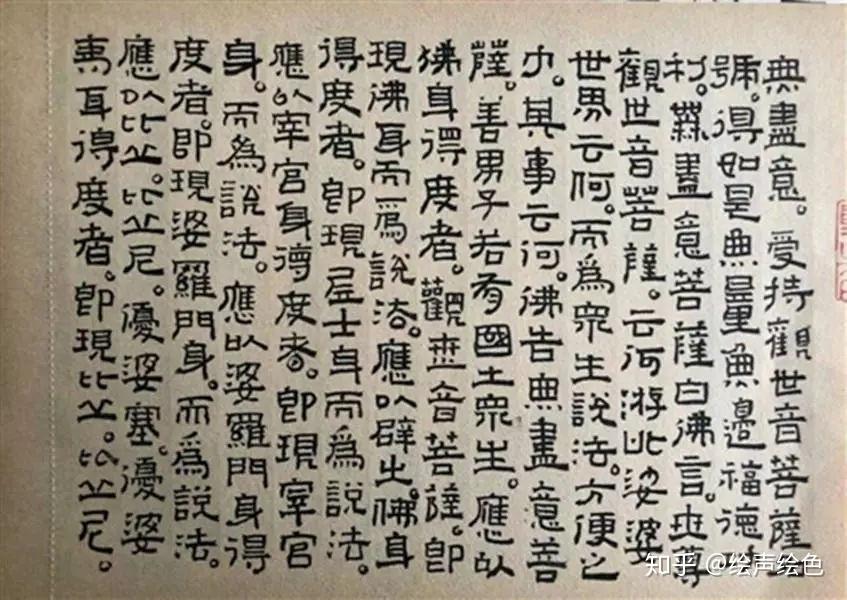 無盡意。受持觀世音菩薩
號。得如是無量無邊福德
利。無盡意菩薩白佛言。世尊
觀世音菩薩。云何游此娑婆
世界云何。而為眾生說法。方便之
力。其事云何。佛告無盡意菩
薩。善男子若有國土眾生。應以
佛身得度者。觀世音菩薩。即
現佛身而爲說法。應以辟支佛身
得度者。即現居士身而爲說法。
應以宰官身得度者。即現宰官
身。而為說法。應以婆羅門身得
度者。即現婆羅門身。而爲說法。
應以比丘。比丘尼。優婆塞。優婆
夷身得度者。即現比丘。比丘尼。
知乎 @绘声绘色